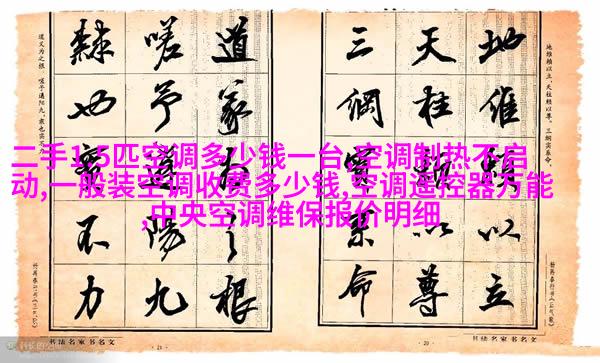 二手1.5匹空调多少钱一台,空调制热不启
动,一般装空调收费多少钱,空调遥控器万能
,中央空调维保报价明细
地维赖以立，天柱赖以尊。三纲实系命，
地維賴以立
天柱賴以尊
三綱實系命
·20·
书法名家书名文
道義為之根
嗟予遘陽九
隸也實不力
道义为之根。嗟予遘阳九，隶也实不力。
·21·
书法名家书名文